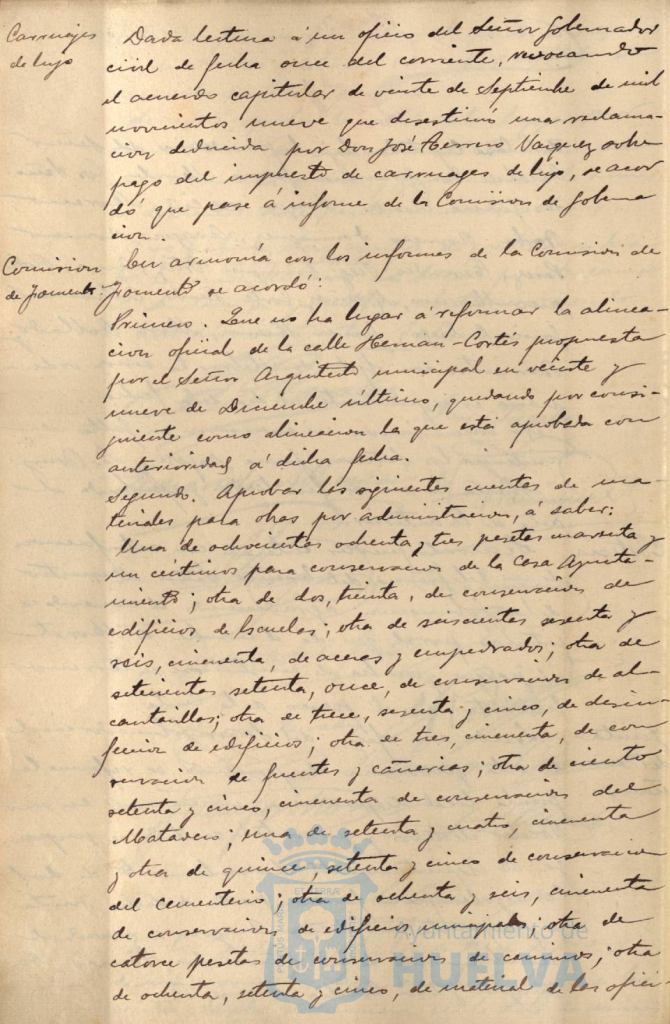 Carruajes
de lujo
Dada lectura á un oficio del Señor Gobernador
civil de fecha once del corriente, revocando
el acuerdo capitular de veinte de Septiembre de mil
novecientos nueve que desestimó una reclama-
cion deducida por Don José Ferrero Vazquez sobre
pago del impuesto de carruages de lujo, se acor
dó que pase á informe de la Comision de Goberna
cion.
Comision
de Fomento.
En armonía con los informes de la Comision de
Fomento se acordó:
Primero. Que no ha lugar á reformar la alinea-
cion oficial de la calle Hernan-Cortés propuesta
por el Señor Arquitecto municipal en veinte y
nueve de Diciembre último, quedando por consi-
guiente como alineacion la que está aprobada con
anterioridad á dicha fecha.
Segundo. Aprobar las siguientes cuentas de ma-
teriales para obras por administracion, á saber:
Una de ochocientas ochenta y tres pesetas y
un céntimos para conservacion de la Casa Ayunta-
miento; otra de dos, treinta, de conservacion de
edificios de Escuelas; otra de seiscientas sesenta y
seis, cincuenta, de aceras y empedrados; otra de
setecientas setenta, once, de conservacion de al-
cantarillas; otra de trece, sesenta y cinco, de desin-
feccion de edificios; otra de tres, cincuenta, de con
servacion de fuentes y cañerias; otra de ciento
setenta y cinco, cincuenta de conservacion del
Matadero; una de setenta y cuatro, cincuenta
y otra de quince, setenta y cinco de conservacion
del cementerio; otra de ochenta y seis, cincuenta
de conservacion de edificios municipales; otra de
catorce pesetas de conservacion de caminos; otra
de ochenta, setenta y cinco, de material de las ofici-
Ayuntamiento de
HUELVA